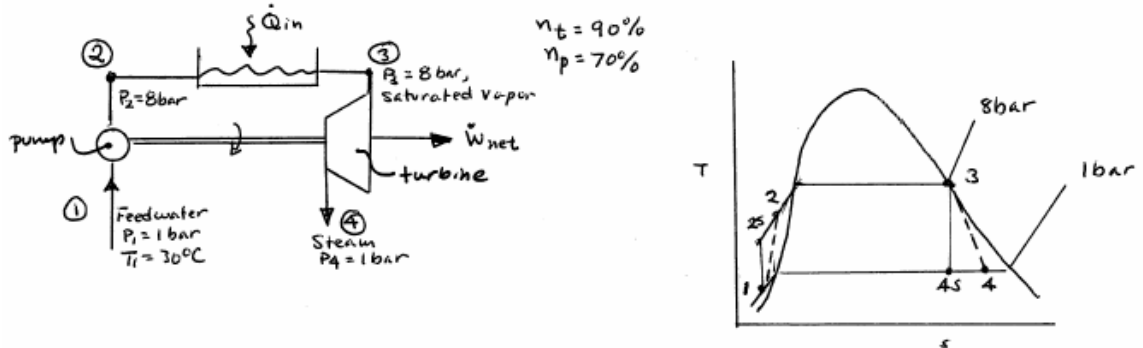 Q̇in
ηt = 90%
ηp = 70%
②
P2 = 8bar
③
P3 = 8bar,
saturated vapor
pump
Ẇnet
turbine
①
Feedwater
P1 = 1bar
T1 = 30°C
④
Steam
P4 = 1bar
8bar
1bar
T
3
2
2s
1
4s
4
s